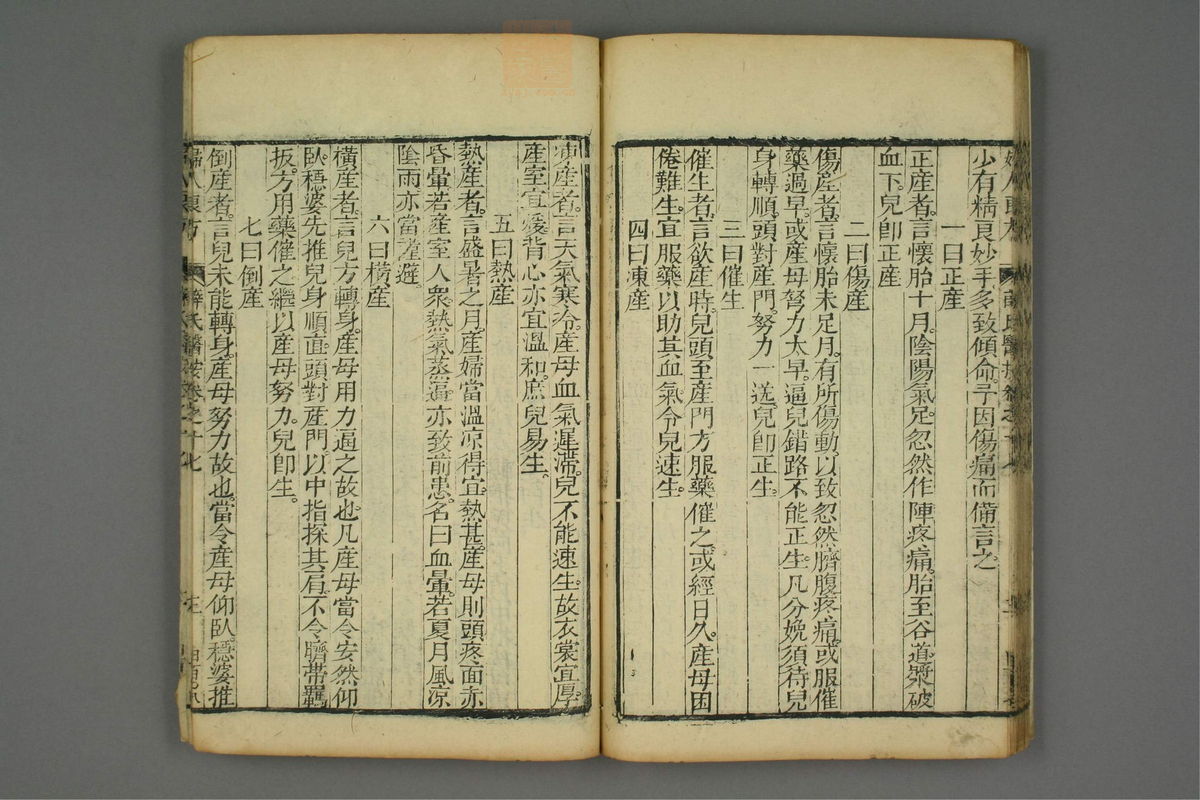 少有精良妙手多致傾命予因傷痛而備言之
一曰正産
正産者言懷胎十月陰陽氣足忽然作陣疼痛胎至谷道漿破
血下兒卽正産
二曰傷産
傷産者言懷胎未足月有所傷動以致忽然臍腹疼痛或服催
藥過早或産母努力太早逼兒錯路不能正生凡分娩須待兒
身轉順頭對産門努力一送兒卽正生
三曰催生
催生者言欲産時兒頭至産門方服藥催之或經日久産母困
倦難生宜服藥以助其血氣令兒速生
四曰凍産
凍産者言天氣寒冷産母血氣遲滯兒不能速生故衣裳宜厚
産室宜煖背心亦宜溫和庶兒易生
五曰熱産
熱産者言盛暑之月産婦當溫涼得宜熱甚産母則頭疼面赤
昏暈若産室人衆熱氣蒸逼亦致前患名曰血暈若夏月風涼
陰雨亦當謹避
六曰橫産
橫産者言兒方轉身産母用力逼之故也凡産母當令安然仰
臥穩婆先推兒身順直頭對産門以中指探其肩不令臍帶羈
扳方用藥催之繼以産母努力兒卽生
七曰倒産
倒産者言兒未能轉身産母努力故也當令産母仰臥穩婆推
婦人良方 薛氏醫按卷之十七